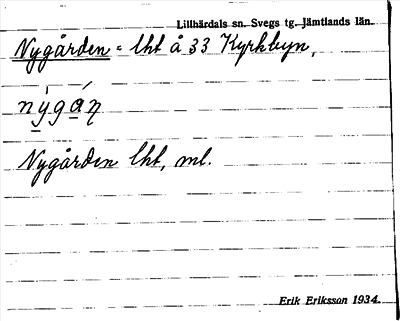 Lillhärdals sn. Svegs tg. Jämtlands län.
Nygården = lht å 33 Kyrkbyn,
nýgáṇ
Nygården lht, ml.
Erik Eriksson 1934.